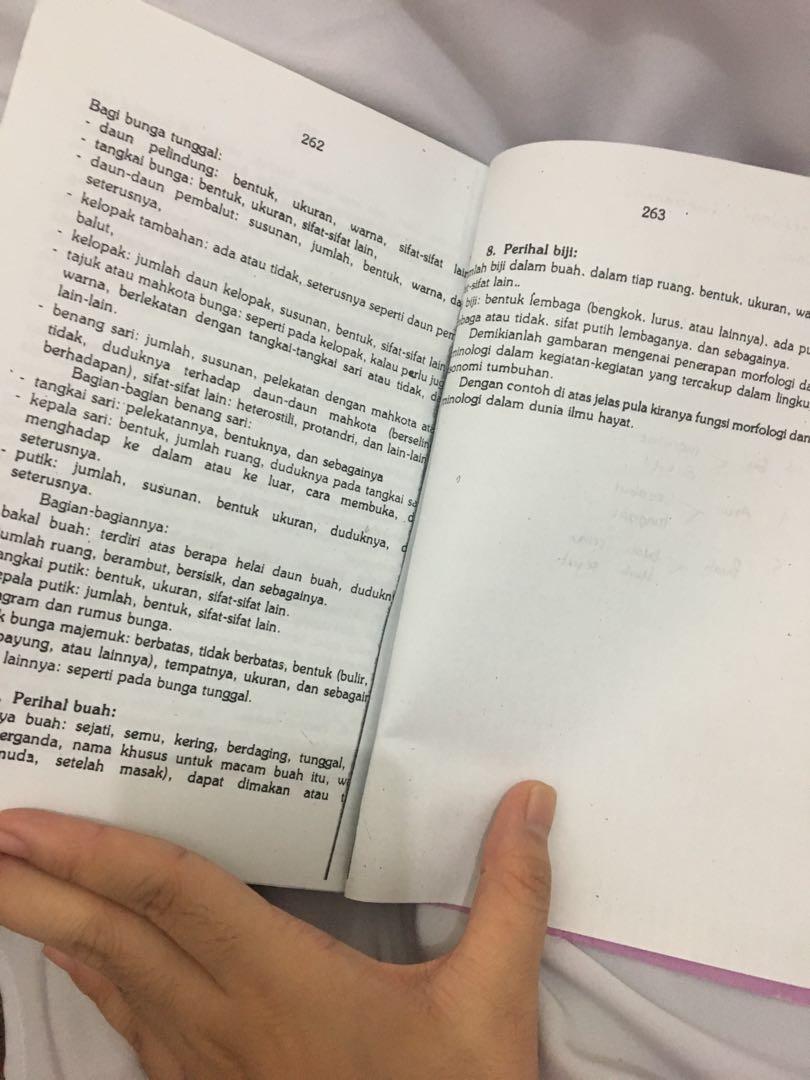 262
Bagi bunga tunggal:
- daun pelindung: bentuk, ukuran, warna, sifat-sifat lain,
- tangkai bunga: bentuk, ukuran, sifat-sifat lain,
- daun-daun pembalut: susunan, jumlah, bentuk, warna, da
seterusnya,
- kelopak tambahan: ada atau tidak, seterusnya seperti daun pem
balut,
- kelopak: jumlah daun kelopak, susunan, bentuk, sifat-sifat lain
- tajuk atau mahkota bunga: seperti pada kelopak, kalau perlu jug
warna, berlekatan dengan tangkai-tangkai sari atau tidak, da
lain-lain.
- benang sari: jumlah, susunan, pelekatan dengan mahkota ata
tidak, duduknya terhadap daun-daun mahkota (berselin
berhadapan), sifat-sifat lain: heterostili, protandri, dan lain-lain
Bagian-bagian benang sari:
- tangkai sari: pelekatannya, bentuknya, dan sebagainya
- kepala sari: bentuk, jumlah ruang, duduknya pada tangkai sa
menghadap ke dalam atau ke luar, cara membuka, d
seterusnya.
- putik: jumlah, susunan, bentuk ukuran, duduknya, d
seterusnya.
Bagian-bagiannya:
bakal buah: terdiri atas berapa helai daun buah, dudukn
umlah ruang, berambut, bersisik, dan sebagainya.
angkai putik: bentuk, ukuran, sifat-sifat lain.
epala putik: jumlah, bentuk, sifat-sifat lain.
agram dan rumus bunga.
k bunga majemuk: berbatas, tidak berbatas, bentuk (bulir,
payung, atau lainnya), tempatnya, ukuran, dan sebagain
lainnya: seperti pada bunga tunggal.
Perihal buah:
ya buah: sejati, semu, kering, berdaging, tunggal,
erganda, nama khusus untuk macam buah itu, w
muda, setelah masak), dapat dimakan atau t
263
8. Perihal biji:
mlah biji dalam buah, dalam tiap ruang, bentuk, ukuran, wa
at-sifat lain..
biji: bentuk lembaga (bengkok, lurus, atau lainnya), ada pu
baga atau tidak, sifat putih lembaganya, dan sebagainya.
Demikianlah gambaran mengenai penerapan morfologi da
minologi dalam kegiatan-kegiatan yang tercakup dalam lingku
sonomi tumbuhan.
Dengan contoh di atas jelas pula kiranya fungsi morfologi dan
minologi dalam dunia ilmu hayat.